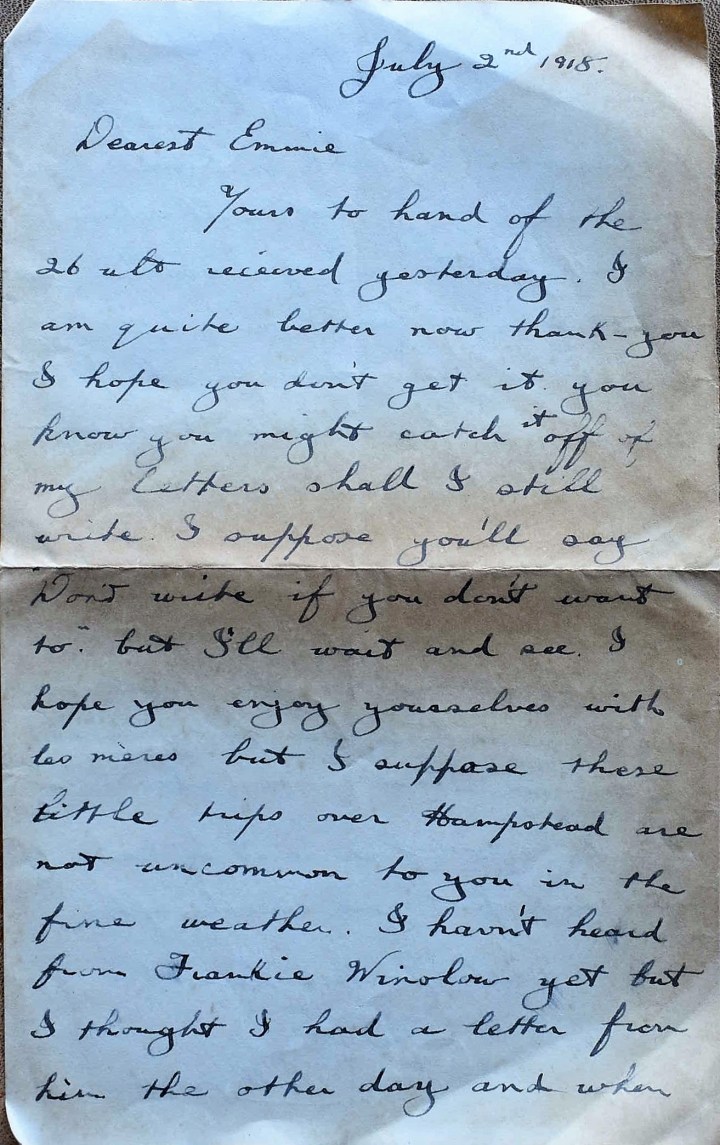 July 2nd 1918.
Dearest Emmie
Yours to hand of the
26 ulto recieved yesterday. I
am quite better now thank-you
I hope you don't get it. you
know you might catch it off of
my letters shall I still
write. I suppose you'll say
"Don't write if you don't want
to." but I'll wait and see. I
hope you enjoy yourselves with
les mères but I suppose these
little trips over Hampstead are
not uncommon to you in the
fine weather. I havn't heard
from Frankie Winslow yet but
I thought I had a letter from
him the other day and when